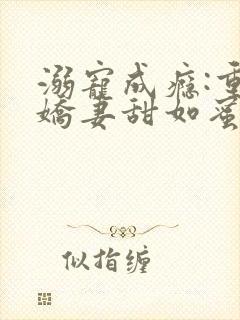 溺寵成癮:重
嬌妻甜如蜜
似指缠